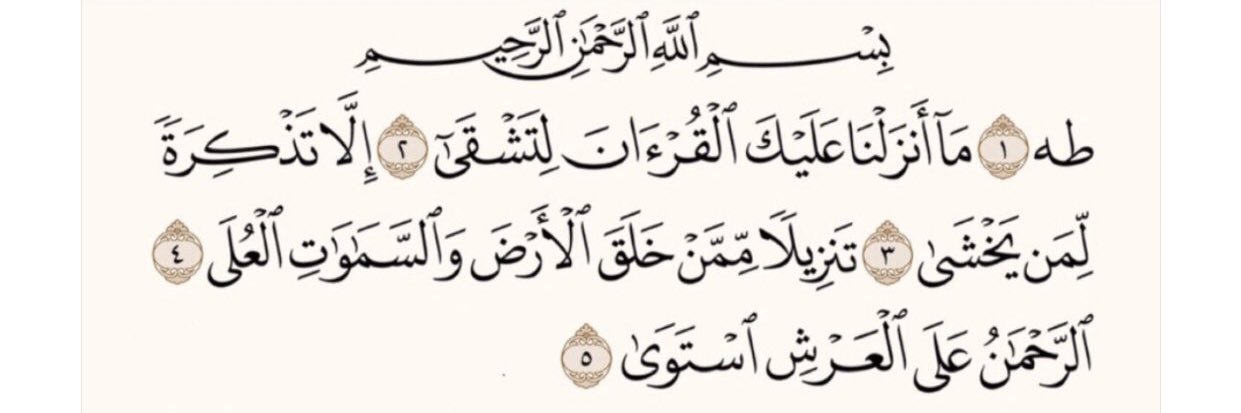 بِسْمِ ٱللَّهِ ٱلرَّحْمَٰنِ ٱلرَّحِيمِ
طه ١ مَآ أَنزَلْنَا عَلَيْكَ ٱلْقُرْءَانَ لِتَشْقَىٰٓ ٢ إِلَّا تَذْكِرَةً
لِّمَن يَخْشَىٰ ٣ تَنزِيلًا مِّمَّنْ خَلَقَ ٱلْأَرْضَ وَٱلسَّمَٰوَٰتِ ٱلْعُلَى ٤
ٱلرَّحْمَٰنُ عَلَى ٱلْعَرْشِ ٱسْتَوَىٰ ٥